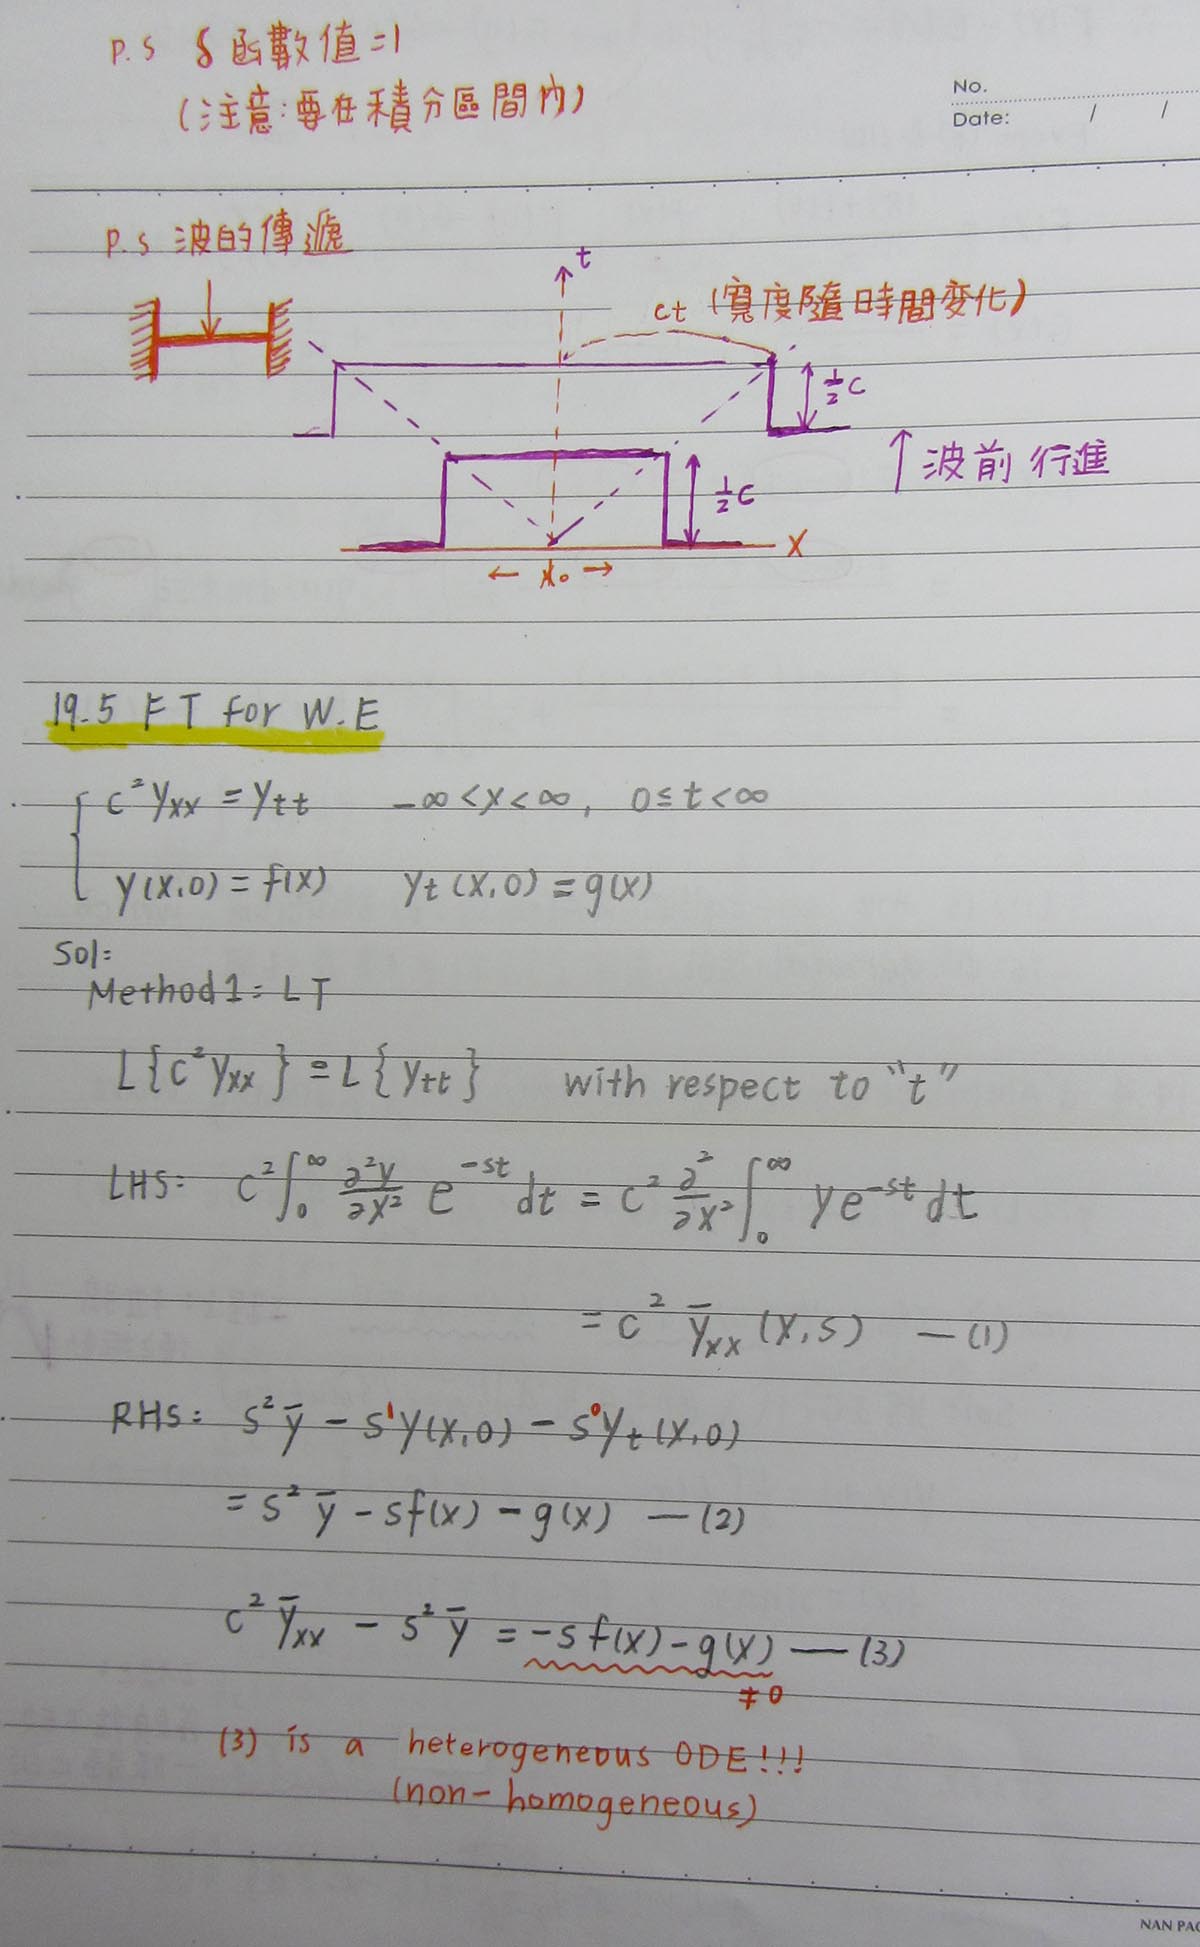 P.S δ函數值=1
(注意:要在積分區間內)
No.
Date: / /
P.S 波的傳遞
t
ct (寬度隨時間变化)
½C
↑波前 行進
½C
X
← X₀ →
19.5 FT for W.E
c²yxx = ytt -∞<x<∞, 0≤t<∞
y(x,0) = f(x) yt(x,0) = g(x)
Sol:
Method1: LT
L{c²yxx} = L{ytt} with respect to "t"
LHS: c²∫₀^∞ ∂²y/∂x² e^-st dt = c² ∂²/∂x² ∫₀^∞ ye^-st dt
= c² ȳxx (x,s) —(1)
RHS: s²ȳ - s¹y(x,0) - s⁰yt(x,0)
= s²ȳ - sf(x) - g(x) —(2)
c²ȳxx - s²ȳ = -sf(x) - g(x) —(3)
≠0
(3) is a heterogeneous ODE!!!
(non-homogeneous)